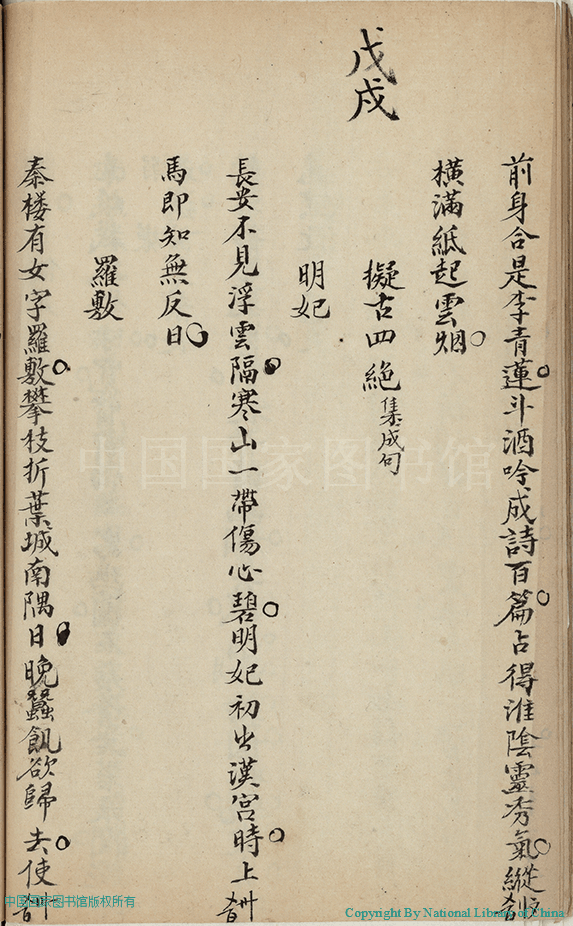 戊戌
前身合是李青蓮斗酒吟成詩百篇占得淮陰靈秀氣縱
橫滿紙起雲烟
擬古四絕集成句
明妃
長安不見浮雲隔寒山一帶傷心碧明妃初出漢宮時上
馬即知無反日
羅敷
秦楼有女字羅敷攀枝折葉城南隅日晚蠶飢欲歸去使
中国国家图书馆
中国国家图书馆版权所有
Copyright By National Library of China